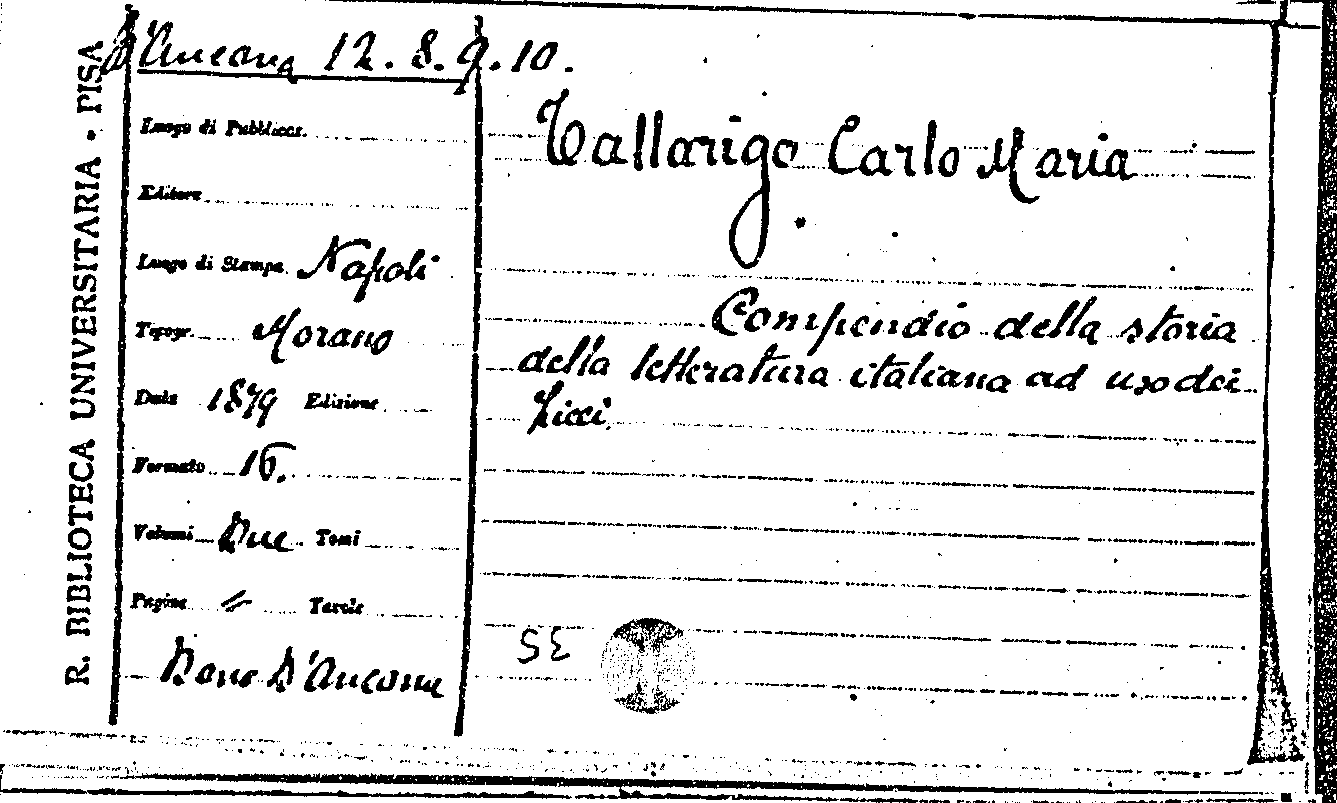 R. BIBLIOTECA UNIVERSITARIA • PISA
D'Ancona 12. 8. 9. 10.
Luogo di Pubblicaz.
Editore
Luogo di Stampa Napoli
Tipogr. Morano
Data 1879 Edizione
Formato 16.
Volumi Due Tomi
Pagine // Tavole
Dono D'Ancona
Tallarigo Carlo Maria.
Compendio della storia
della letteratura italiana ad uso dei
Licei.
SE